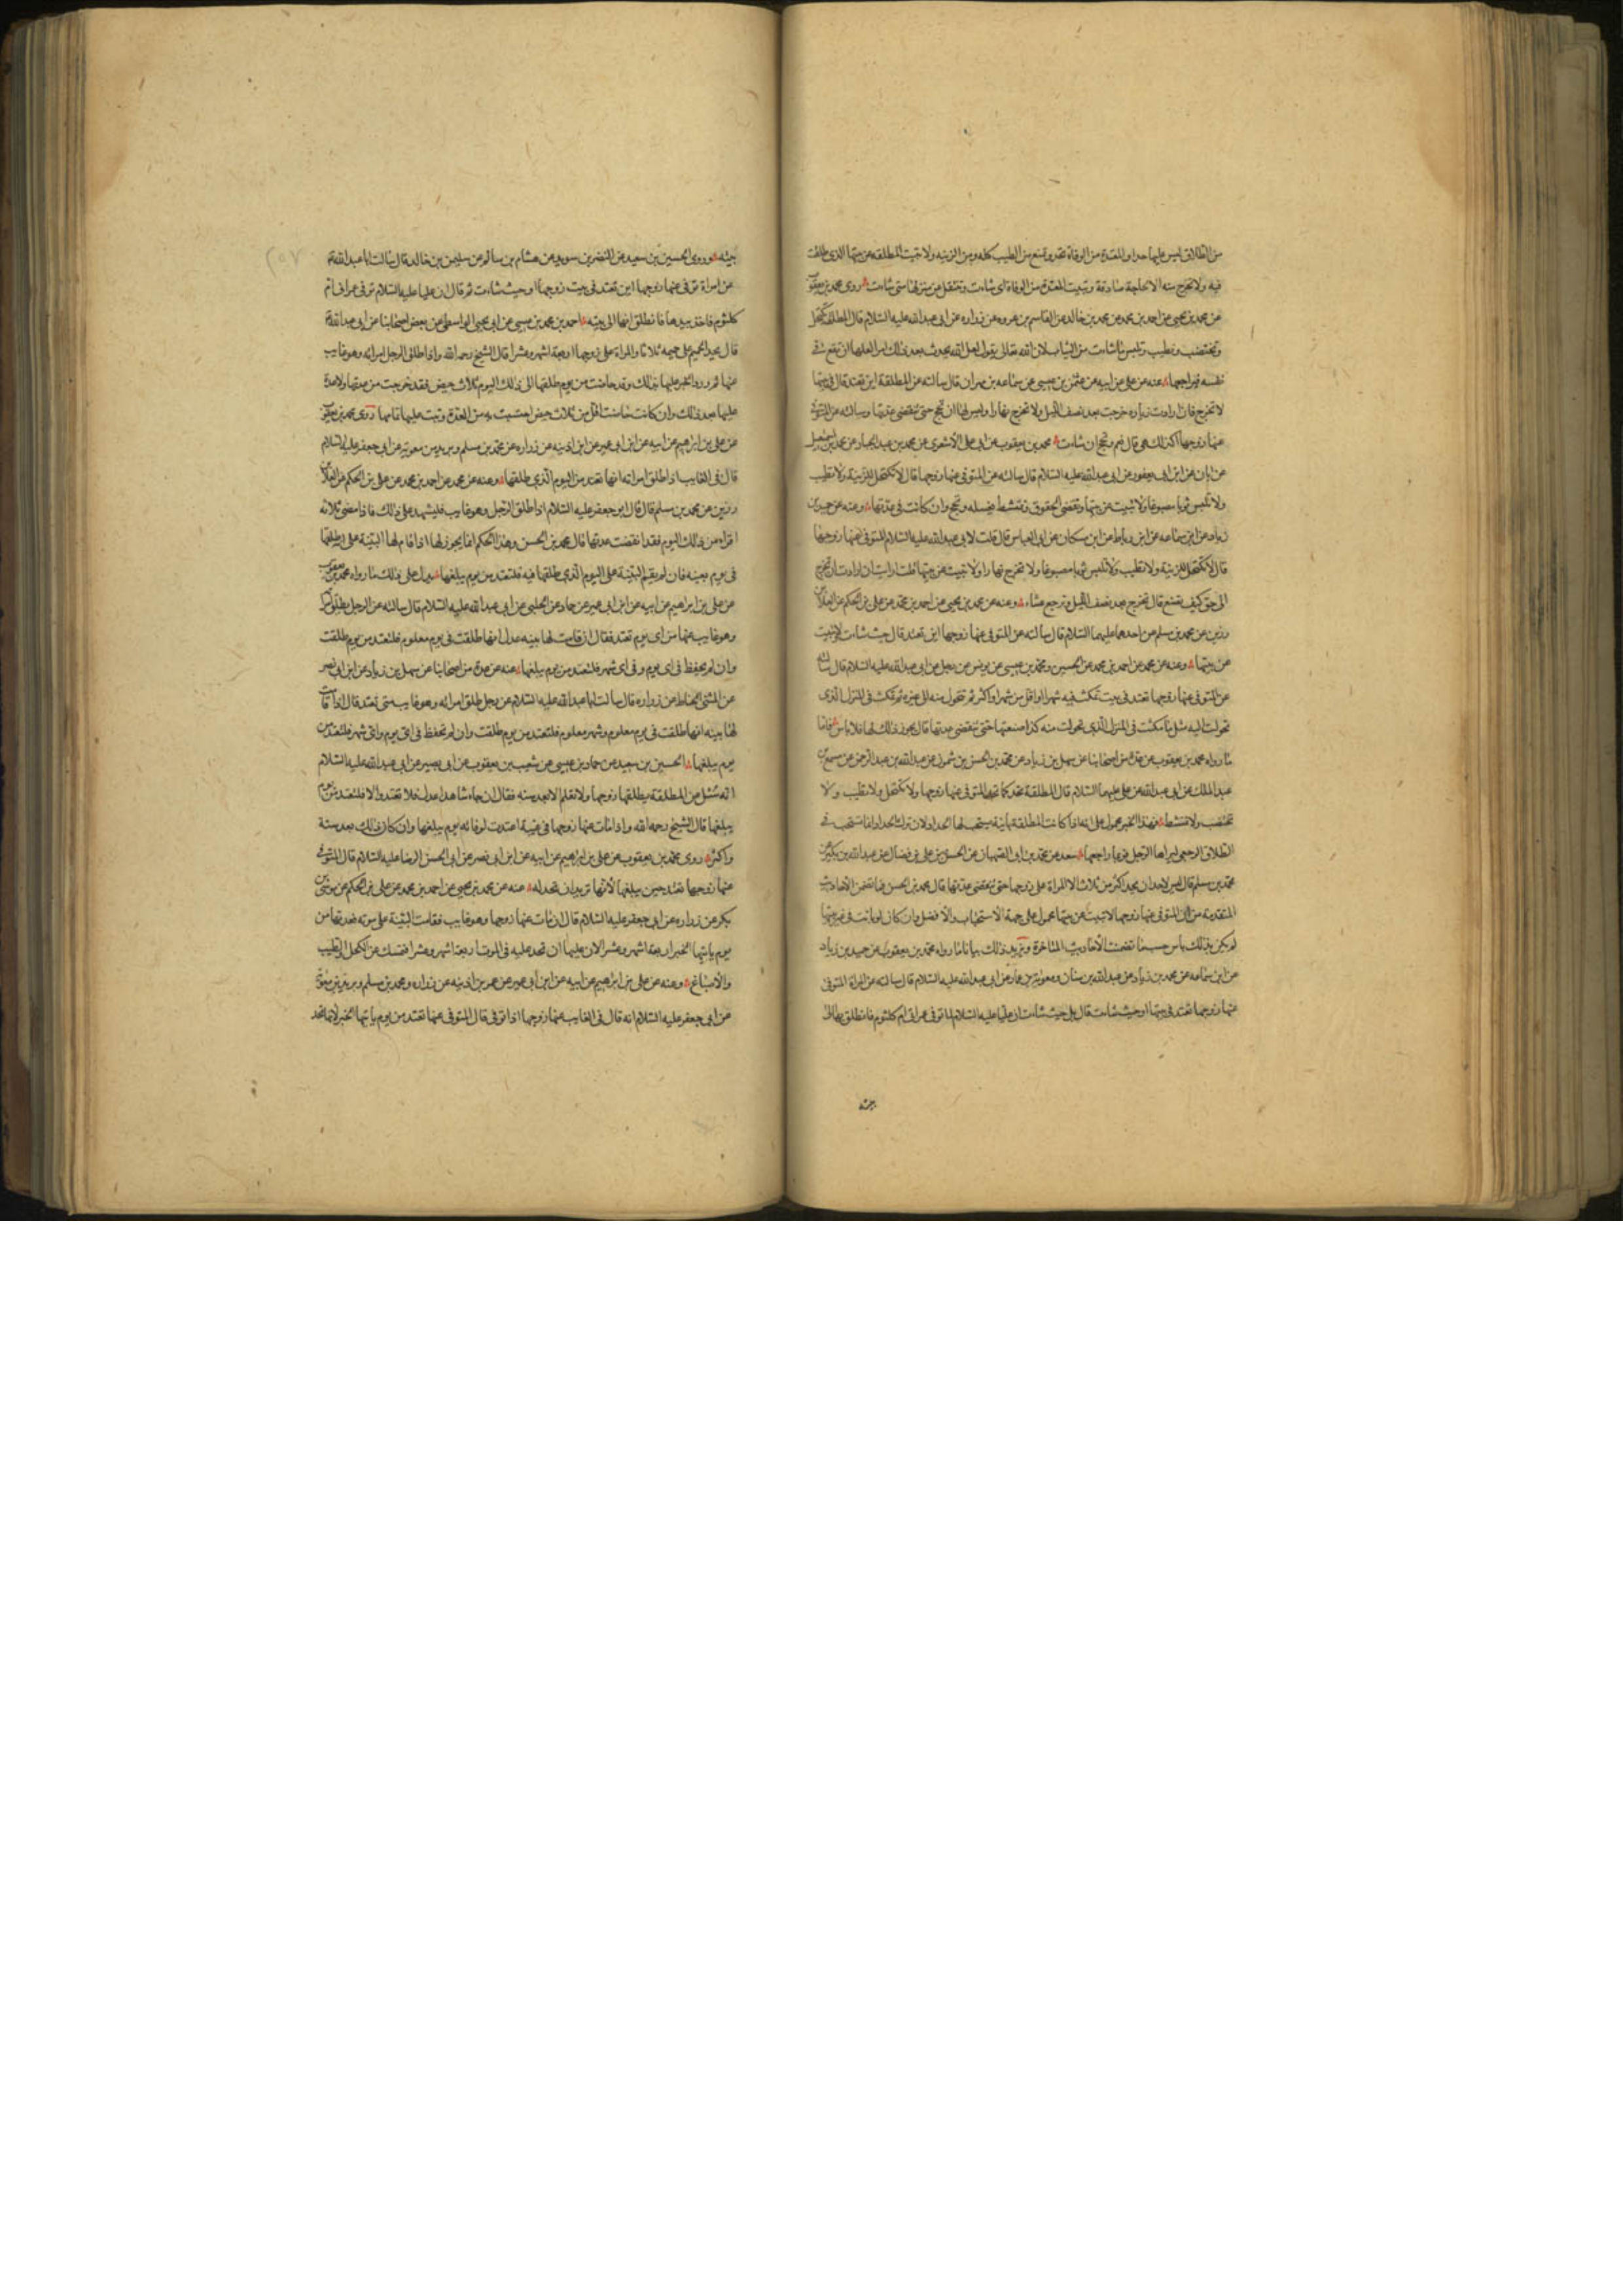 من الطلاق ليس عليها حداد والمعتدة من الوفاة تحد وتمتنع من الطيب كله ومن الزينه ولا تبيت المطلقه عن بيتها الذي طلقت
فيه ولا تخرج منه الا لحاجة صادقة وتبيت المعتدة من الوفاة اى شاءت وتنتقل من منزلها متى شاءت روى محمد بن يعقوب
عن محمد بن يحيى عن احمد بن محمد عن محمد بن خالد عن القاسم بن عروه عن زراره عن ابى عبد الله عليه السلام قال المطلقه تكتحل
وتختضب وتطيب وتلبس ما شاءت من الثياب لان الله تعالى يقول لعل الله يحدث بعد ذلك امرا لعلها ان تقع فى
نفسه فيراجعها عنه عن على عن ابيه عن عثمن بن عيسى عن سماعه بن مهران قال سالته عن المطلقة اين تعتد قال فى بيتها
لا تخرج فان ارادت زياره خرجت بعد نصف الليل ولا تخرج نهارا وليس لها ان تحج حتى تنقضى عدتها وسالته عن المتوفى
عنها زوجها اكذلك هى قال نعم وتحج ان شاءت محمد بن يعقوب عن ابى على الاشعرى عن محمد بن عبد الجبار عن محمد بن اسمعيل
عن ابان عن ابن ابى يعفور عن ابى عبد الله عليه السلام قال سالته عن المتوفى عنها زوجها قال لا تكتحل للزينة ولا تطيب
ولا تلبس ثوبا مصبوغا ولا تبيت عن بيتها وتقضى الحقوق وتمتشط بغسله وتحج وان كانت فى عدتها وعنه عن حميد بن
زياد عن ابن سماعه عن ابن رباط عن ابن مسكان عن ابى العباس قال قلت لابى عبد الله عليه السلام المتوفى عنها زوجها
قال لا تكتحل للزينة ولا تطيب ولا تلبس ثوبا مصبوغا ولا تخرج نهارا ولا تبيت عن بيتها قلت ارايت ان ارادت ان تخرج
الى حق كيف تصنع قال تخرج بعد نصف الليل وترجع عشاء وعنه عن محمد بن يحيى عن احمد بن محمد عن على بن الحكم عن العلا بن
رزين عن محمد بن مسلم عن احدهما عليهما السلام قال سالته عن المتوفى عنها زوجها اين تعتد قال حيث شاءت ولا تبيت
عن بيتها وعنه عن محمد عن احمد بن محمد عن الحسين ومحمد بن عيسى عن يونس عن رجل عن ابى عبد الله عليه السلام قال سالته
عن المتوفى عنها زوجها تعتد فى بيت تمكث فيه شهرا او اقل من شهر او اكثر ثم تتحول منه الى غيره ثم تمكث فى المنزل الذى
تحولت اليه مثل ما مكثت فى المنزل الذى تحولت منه كذا صنعتها حتى تنقضى عدتها قال يجوز ذلك لها فلا باس فاما
ما رواه محمد بن يعقوب عن عدة من اصحابنا عن سهل بن زياد عن محمد بن الحسن بن شمون عن عبد الله بن عبد الرحمن عن مسمع بن
عبد الملك عن ابى عبد الله عن على عليهما السلام قال المطلقة تحد كما تحد المتوفى عنها زوجها ولا تكتحل ولا تطيب ولا
تختضب ولا تمتشط فهذا الخبر محمول على انه اذا كانت المطلقة باينة يستحب لها الحداد لان ترك الحداد انما يستحب فى
الطلاق الرجعى ليراها الرجل فربما راجعها سعد عن محمد بن ابى الصهبان عن الحسن بن على بن فضال عن عبد الله بن بكير عن
محمد بن مسلم قال ليس لاحد ان يحد اكثر من ثلاث الا المراة على زوجها حتى تنقضى عدتها قال محمد بن الحسن فما تضمن الاحاديث
المتقدمة من ان المتوفى عنها زوجها لا تبيت عن بيتها محمول على جهة الاستحباب والافضل وان كان لو باتت فى غير بيتها
لم يكن بذلك باس حسب ما تضمنت الاحاديث المتاخرة ويزيد ذلك بيانا ما رواه محمد بن يعقوب عن حميد بن زياد
عن ابن سماعه عن محمد بن زياد عن عبد الله بن سنان ومعوية بن عمار عن ابى عبد الله عليه السلام قال سالته عن المراة المتوفى
عنها زوجها تعتد فى بيتها او حيث شاءت قال بل حيث شاءت ان عليا عليه السلام لما توفى عمر اتى ام كلثوم فانطلق بها الى
بيته
بيته وروى الحسين بن سعيد عن النضر بن سويد عن هشام بن سالم عن سليمن بن خالد قال سالت ابا عبد الله ع
عن امراة توفى عنها زوجها اين تعتد فى بيت زوجها او حيث شاءت ثم قال ان عليا عليه السلام لما توفى عمر اتى ام
كلثوم فاخذ بيدها فانطلق بها الى بيته احمد بن محمد بن عيسى عن ابى يحيى الواسطى عن بعض اصحابنا عن ابى عبد الله ع
قال يحد الحميم على حميمه ثلاثا والمراة على زوجها اربعة اشهر وعشرا قال الشيخ رحمه الله واذا طلق الرجل امراته وهو غايب
عنها ثم ورد الخبر عليها بذلك وقد حاضت من يوم طلقها الى ذلك اليوم ثلاث حيض فقد خرجت من عدتها ولا عدة
عليها بعد ذلك وان كانت حاضت اقل من ثلاث حيض احتسبت به من العدة وتبت عليها تمامها روى محمد بن يعقوب
عن على بن ابرهيم عن ابيه عن ابن ابى عمير عن ابن اذينه عن زراره عن محمد بن مسلم وبريد بن معويه عن ابى جعفر عليه السلام
قال فى الغايب اذا طلق امراته انها تعتد من اليوم الذى طلقها وعنه عن محمد عن احمد بن محمد عن على بن الحكم عن العلا بن
رزين عن محمد بن مسلم قال قال ابو جعفر عليه السلام اذا طلق الرجل وهو غايب فليشهد على ذلك فاذا مضى ثلاثه
اقراء من ذلك اليوم فقد انقضت عدتها قال محمد بن الحسن وهذا الحكم انما يجوز لها اذا قام لها البينة على انه طلقها
فى يوم بعينه فان لم يقم البينة على اليوم الذى طلقها فيه فلتعتد من يوم يبلغها يدل على ذلك ما رواه محمد بن يعقوب
عن على بن ابراهيم عن ابيه عن ابن ابى عمير عن حماد عن الحلبى عن ابى عبد الله عليه السلام قال سالته عن الرجل يطلق امراته
وهو غايب عنها من اى يوم تعتد فقال ان قامت لها بينه عدل انها طلقت فى يوم معلوم فلتعتد من يوم طلقت
وان لم تحفظ فى اى يوم وفى اى شهر فلتعتد من يوم يبلغها عنه عن عدة من اصحابنا عن سهل بن زياد عن ابن ابى نصر
عن المثنى الحناط عن زراره قال سالت ابا عبد الله عليه السلام عن رجل طلق امراته وهو غايب متى تعتد قال اذا قامت
لها بينه انها طلقت فى يوم معلوم وشهر معلوم فلتعتد من يوم طلقت وان لم تحفظ فى اى يوم واى شهر فلتعتد من
يوم يبلغها الحسين بن سعيد عن حماد بن عيسى عن شعيب بن يعقوب عن ابى بصير عن ابى عبد الله عليه السلام
انه سئل عن المطلقة يطلقها زوجها ولا تعلم الا بعد سنه فقال ان جاء شاهدا عدل فلا تعتد والا فلتعتد من يوم
يبلغها قال الشيخ رحمه الله واذا مات عنها زوجها فى غيبة اعتدت لوفاته يوم يبلغها وان كان ذلك بعد سنة
واكثر روى محمد بن يعقوب عن على بن ابرهيم عن ابيه عن ابن ابى نصر عن ابى الحسن الرضا عليه السلام قال المتوفى
عنها زوجها تعتد حين يبلغها لانها تريد ان تحد له عنه عن محمد بن يحيى عن احمد بن محمد عن على بن الحكم عن موسى بن
بكر عن زراره عن ابى جعفر عليه السلام قال ان مات عنها زوجها وهو غايب فقامت البينة على موته فعدتها من
يوم ياتيها الخبر اربعة اشهر وعشرا لان عليها ان تحد عليه فى الموت اربعة اشهر وعشرا فتمسك عن الكحل والطيب
والاصباغ وعنه عن على بن ابرهيم عن ابيه عن ابن ابى عمير عن عمر بن اذينه عن زراره ومحمد بن مسلم وبريد بن معويه
عن ابى جعفر عليه السلام انه قال فى الغايب عنها زوجها اذا توفى قال المتوفى عنها تعتد من يوم ياتيها الخبر لانها تحد